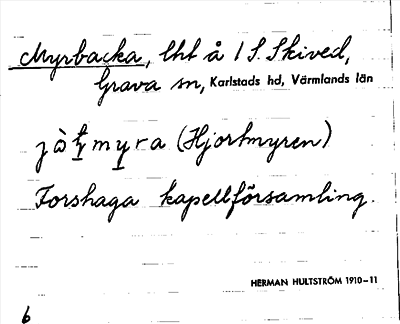 Myrbacka, lht å 1 S. Skived,
Grava sn, Karlstads hd, Värmlands län
(Hjortmyren)
Forshaga kapellförsamling.
HERMAN HULTSTRÖM 1910–11
6